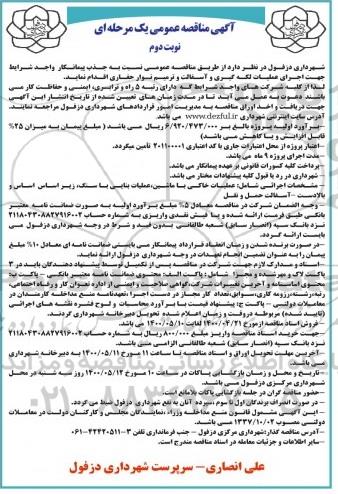 آگهی مناقصه عمومی یک مرحله ای
نوبت دوم
شهرداری دزفول در نظر دارد از طریق مناقصه عمومی نسبت به جذب پیمانکار واجد شرایط
جهت اجرای عملیات لکه گیری و آسفالت و ترمیم نوار حفاری اقدام نماید.
لذا از کلیه شرکت های واجد شرایط که دارای رتبه ۵ راه و ترابری، ایمنی و حفاظت کار می
باشند دعوت به عمل می آید تا در مدت زمان های تعیین شده از تاریخ انتشار این آگهی
جهت دریافت و اخذ اوراق مناقصه به مدیریت امور قراردادهای شهرداری دزفول مراجعه نمایند.
آدرس سایت اینترنتی شهرداری www.dezful.ir می باشد.
-برآورد اولیه پروژه بالغ بر ۶/۹۲۰/۴۷۳/۰۰۰ ریال می باشد ( مبلغ پیمان به میزان ۲۵%
قابل افزایش و یا کاهش می باشد)
-اعتبار پروژه از محل اعتبارات جاری با کد اعتباری ۲۰۱۱۰۰۰۱ تأمین میگردد.
-مدت اجرای پروژه ۹ ماه می باشد.
-پرداخت کلیه کسورات قانونی بر عهده پیمانکار می باشد.
-شهرداری در رد یا قبول کلیه پیشنهادات مختار می باشد.
-مشخصات اجرائی شامل: عملیات خاکی با ماشین، عملیات بنایی با سنگ، زیر اساس اساس و
بالادست - آسفالت حمل و نقل
-وجه الضمان شرکت در مناقصه معادل ۵% مبلغ برآورد اولیه به صورت ضمانت نامه معتبر
بانکی طبق فرمت ارائه شده و یا فیش نقدی واریزی به شماره حساب
نزد بانک سپه (انصار سابق) شعبه طالقانی بدون قید و شرط در وجه شهرداری دزفول می
بایست ارائه گردد.
-در صورت برنده شدن و زمان انعقاد قرارداد پیمانکار می بایستی ضمانت نامه ای معادل ۱۰% مبلغ
پیمان را به عنوان تضمین انجام تعهدات در وجه شهرداری دزفول ارائه نماید.
-اسناد و مدارک لازم جهت شرکت در مناقصه پس از تکمیل توسط پیشنهاد دهندگان باید در ۳
پاکت لاک و مهر شده و مجزا شامل: پاکت الف: محتوی ضمانت نامه معتبر بانکی – پاکت ب:
محتوی اساسنامه و آخرین تغییرات شرکت، گواهی صلاحیت و ایمنی از اداره تعاون کار و رفاه اجتماعی،
معاملات دولتی – پاکت ج: پیشنهاد قیمت با
(تایید شده) مربوطه در وقت و زمان اعلام شده تحویل دبیرخانه شهرداری گردند.
-فروش اسناد مناقصه ازمورخ ۱۴۰۰/۰۴/۳۱ لغایت ۱۴۰۰/۰۵/۱۰
-جهت خرید اسناد مناقصه واریز مبلغ ۸۰۰/۰۰۰ ریال به شماره حساب
نزد بانک سپه (انصار سابق) شعبه طالقانی الزامی می باشد.
-آخرین مهلت تحویل اوراق و اسناد مناقصه تا ساعت ۱۱ مورخ ۱۴۰۰/۰۵/۱۱ به دبیرخانه شهرداری
می باشد.
-تاریخ و محل و زمان بازگشایی پاکات در ساعت ۱۰ مورخ ۱۴۰۰/۰۵/۱۲ روز سه شنبه در محل
شهرداری مرکزی دزفول می باشد.
-حضور مناقصه گران در جلسه بازگشایی پاکات بلامانع است.
-در صورت انصراف برندگان اول تا سوم، سپرده آنان به نفع شهرداری دزفول ضبط می گردد.
-این آگهی مشمول قانون منع مداخله وزراء، نمایندگان مجلس و کارکنان دولت در معاملات
دولتی مصوب ۱۳۳۷/۱۰/۰۲ می باشد.
-آدرس مناقصه گذار:شهرداری مرکزی دزفول – جنب فرمانداری تلفن ۳-۴۲۴۲۰۵۱۱-۰۶۱
-سایر اطلاعات و جزئیات معامله در اسناد مناقصه مندرج است.
علی انصاری – سرپرست شهرداری دزفول